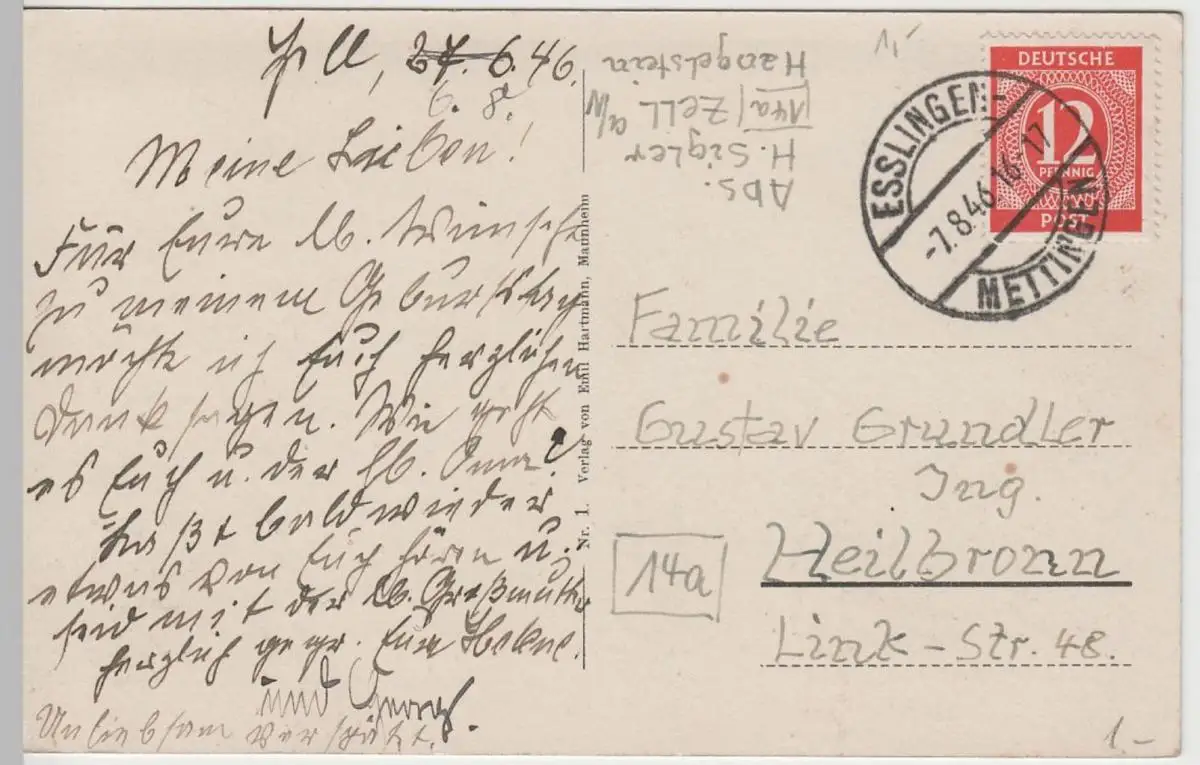 Zell, 27. 6. 46.
6. 8.
Meine Lieben!
Für Eure lb. Wünsche
zu meinem Geburtstag
möchte ich Euch herzlichen
Dank sagen. Wie geht
es Euch u. der lb. Oma?
Laßt bald wieder
etwas von Euch hören u.
seid mit der lb. Großmutter
herzlich gegr. Eure Helene.
und Georg.
Unliebsam verspätet.
Nr. 1. Verlag von Emil Hartmann, Mannheim
Abs.
H. Sigler
14a/Zell a/N
Hangelstein
1,-
DEUTSCHE
12
PFENNIG
POST
ESSLINGEN-
-7.8.46 16-17
METTINGEN
Familie
Gustav Grundler
Ing.
14a
Heilbronn
Link-Str. 48.
1.-